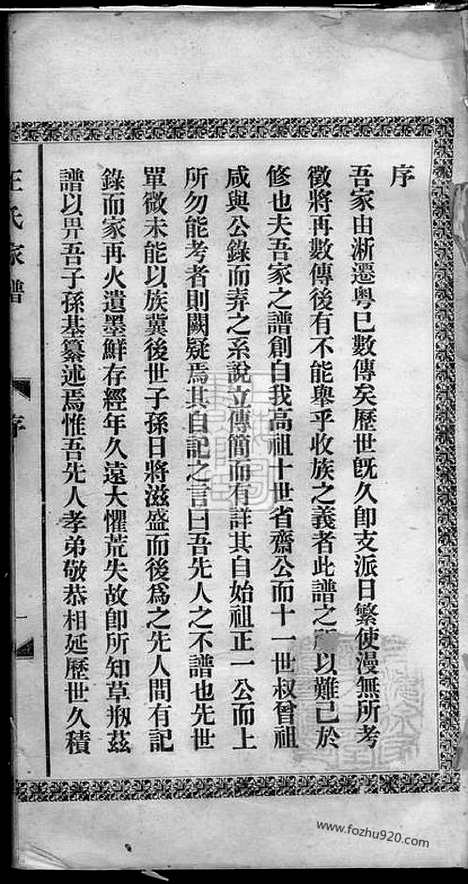 序
吾家由淅遷粵已數傳矣歷世旣久卽支派日繁使漫無所考
徵將再數傳後有不能舉乎收族之義者此譜之所以難已於
修也夫吾家之譜創自我高祖十世省齋公而十一世叔曾祖
咸與公錄而弆之系說立傳簡而有詳其自始祖正一公而上
所勿能考者則闕疑焉其自記之言曰吾先人之不譜也先世
單微未能以族冀後世子孫日將滋盛而後爲之先人間有記
錄而家再火遺墨鮮存經年久遠大懼荒失故卽所知草剏茲
譜以畀吾子孫基纂述焉惟吾先人孝弟敬恭相延歷世久積
氏家譜
序
一
www.fozhu920.com